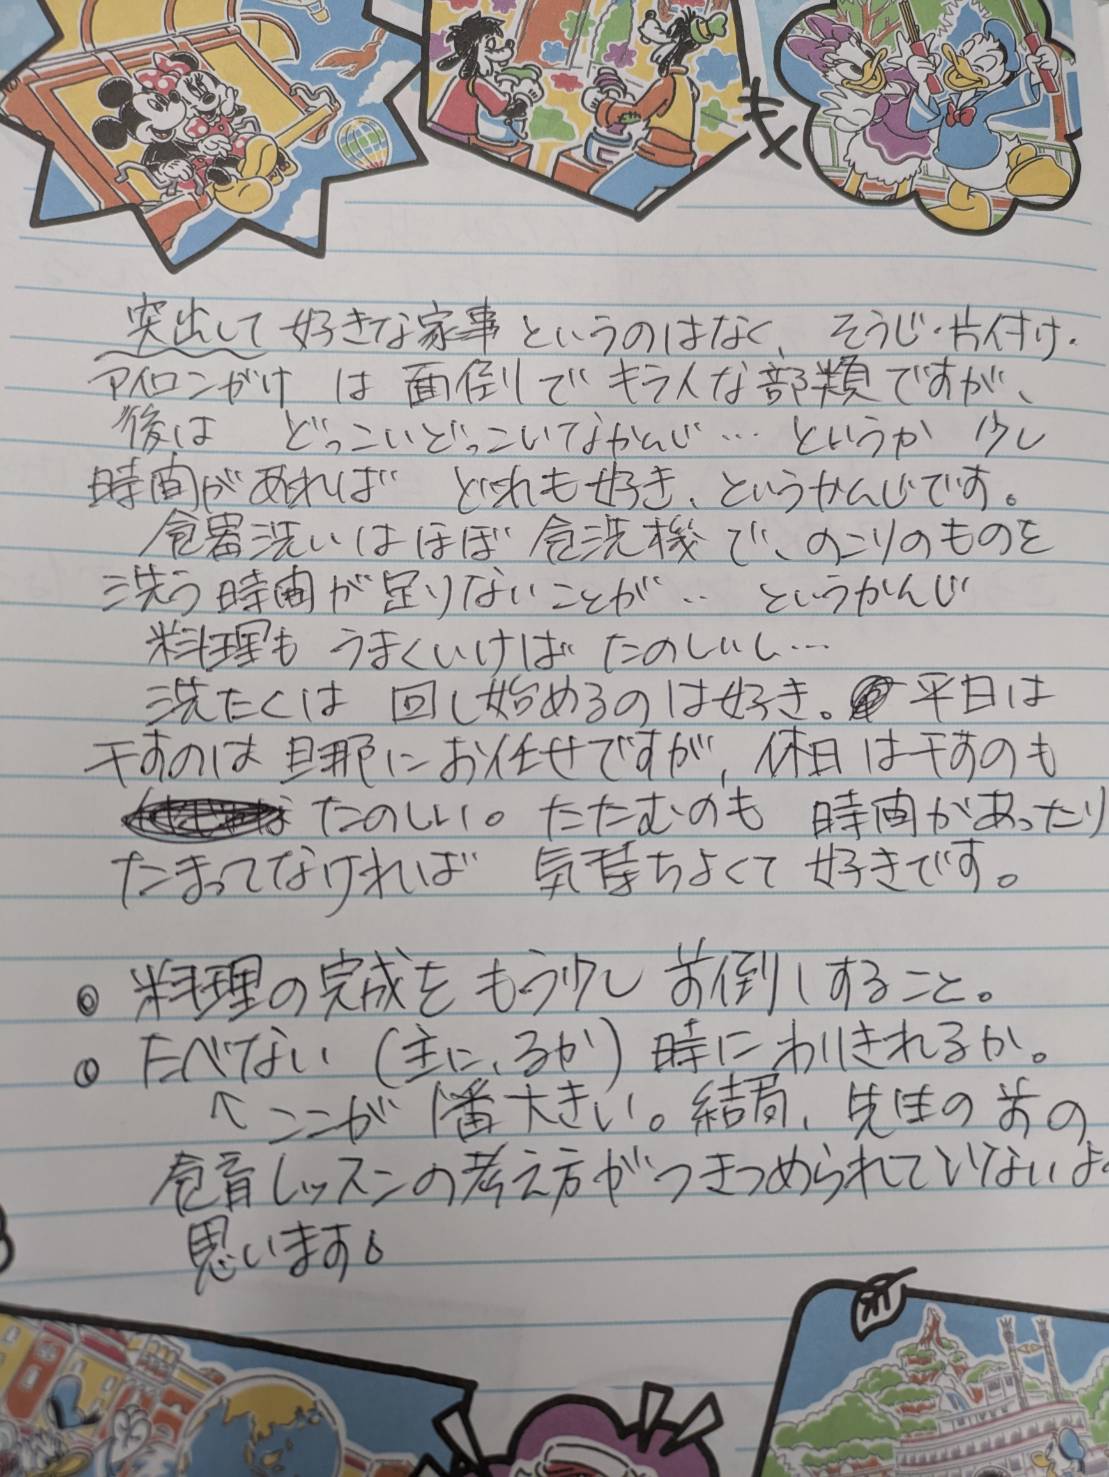 突出して好きな家事というのはなく、そうじ・片付け・
アイロンがけ は 面倒でキライな部類ですが、
後は どっこいどっこいなかんじ… というか 少し
時間があれば どれも好き、というかんじです。
食器洗いはほぼ 食洗機で、のこりのものを
洗う時間が足りないことが… というかんじ
料理も うまくいけば たのしいし…
洗たくは 回し始めるのは好き。平日は
干すのは旦那にお任せですが、休日は干すのも
たのしい。たたむのも 時間があったり
たまってなければ 気持ちよくて 好きです。
◎ 料理の完成を もう少し 前倒しすること。
◎ たべない (主に、るか) 時にわりきれるか。
↑ ここが 1番大きい。結局、先生の前の
食育レッスンの考え方がつきつめられていないよ
思います。